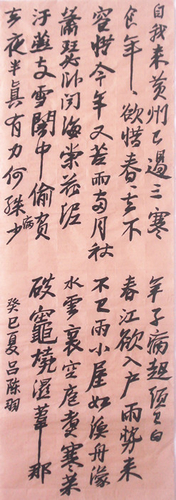 自我来黄州已過三寒
食年ゝ欲惜春ゝ去不
容惜今年又苦雨両月秋
蕭瑟卧聞海棠花泥
汙燕支雪闇中偷負
去夜半真有力何殊少
病
年子病起須已白
春江欲入户雨勢来
不已雨小屋如漁舟濛
水雲裏空庖煮寒菜
破竈燒濕葦那
癸巳夏呂陳